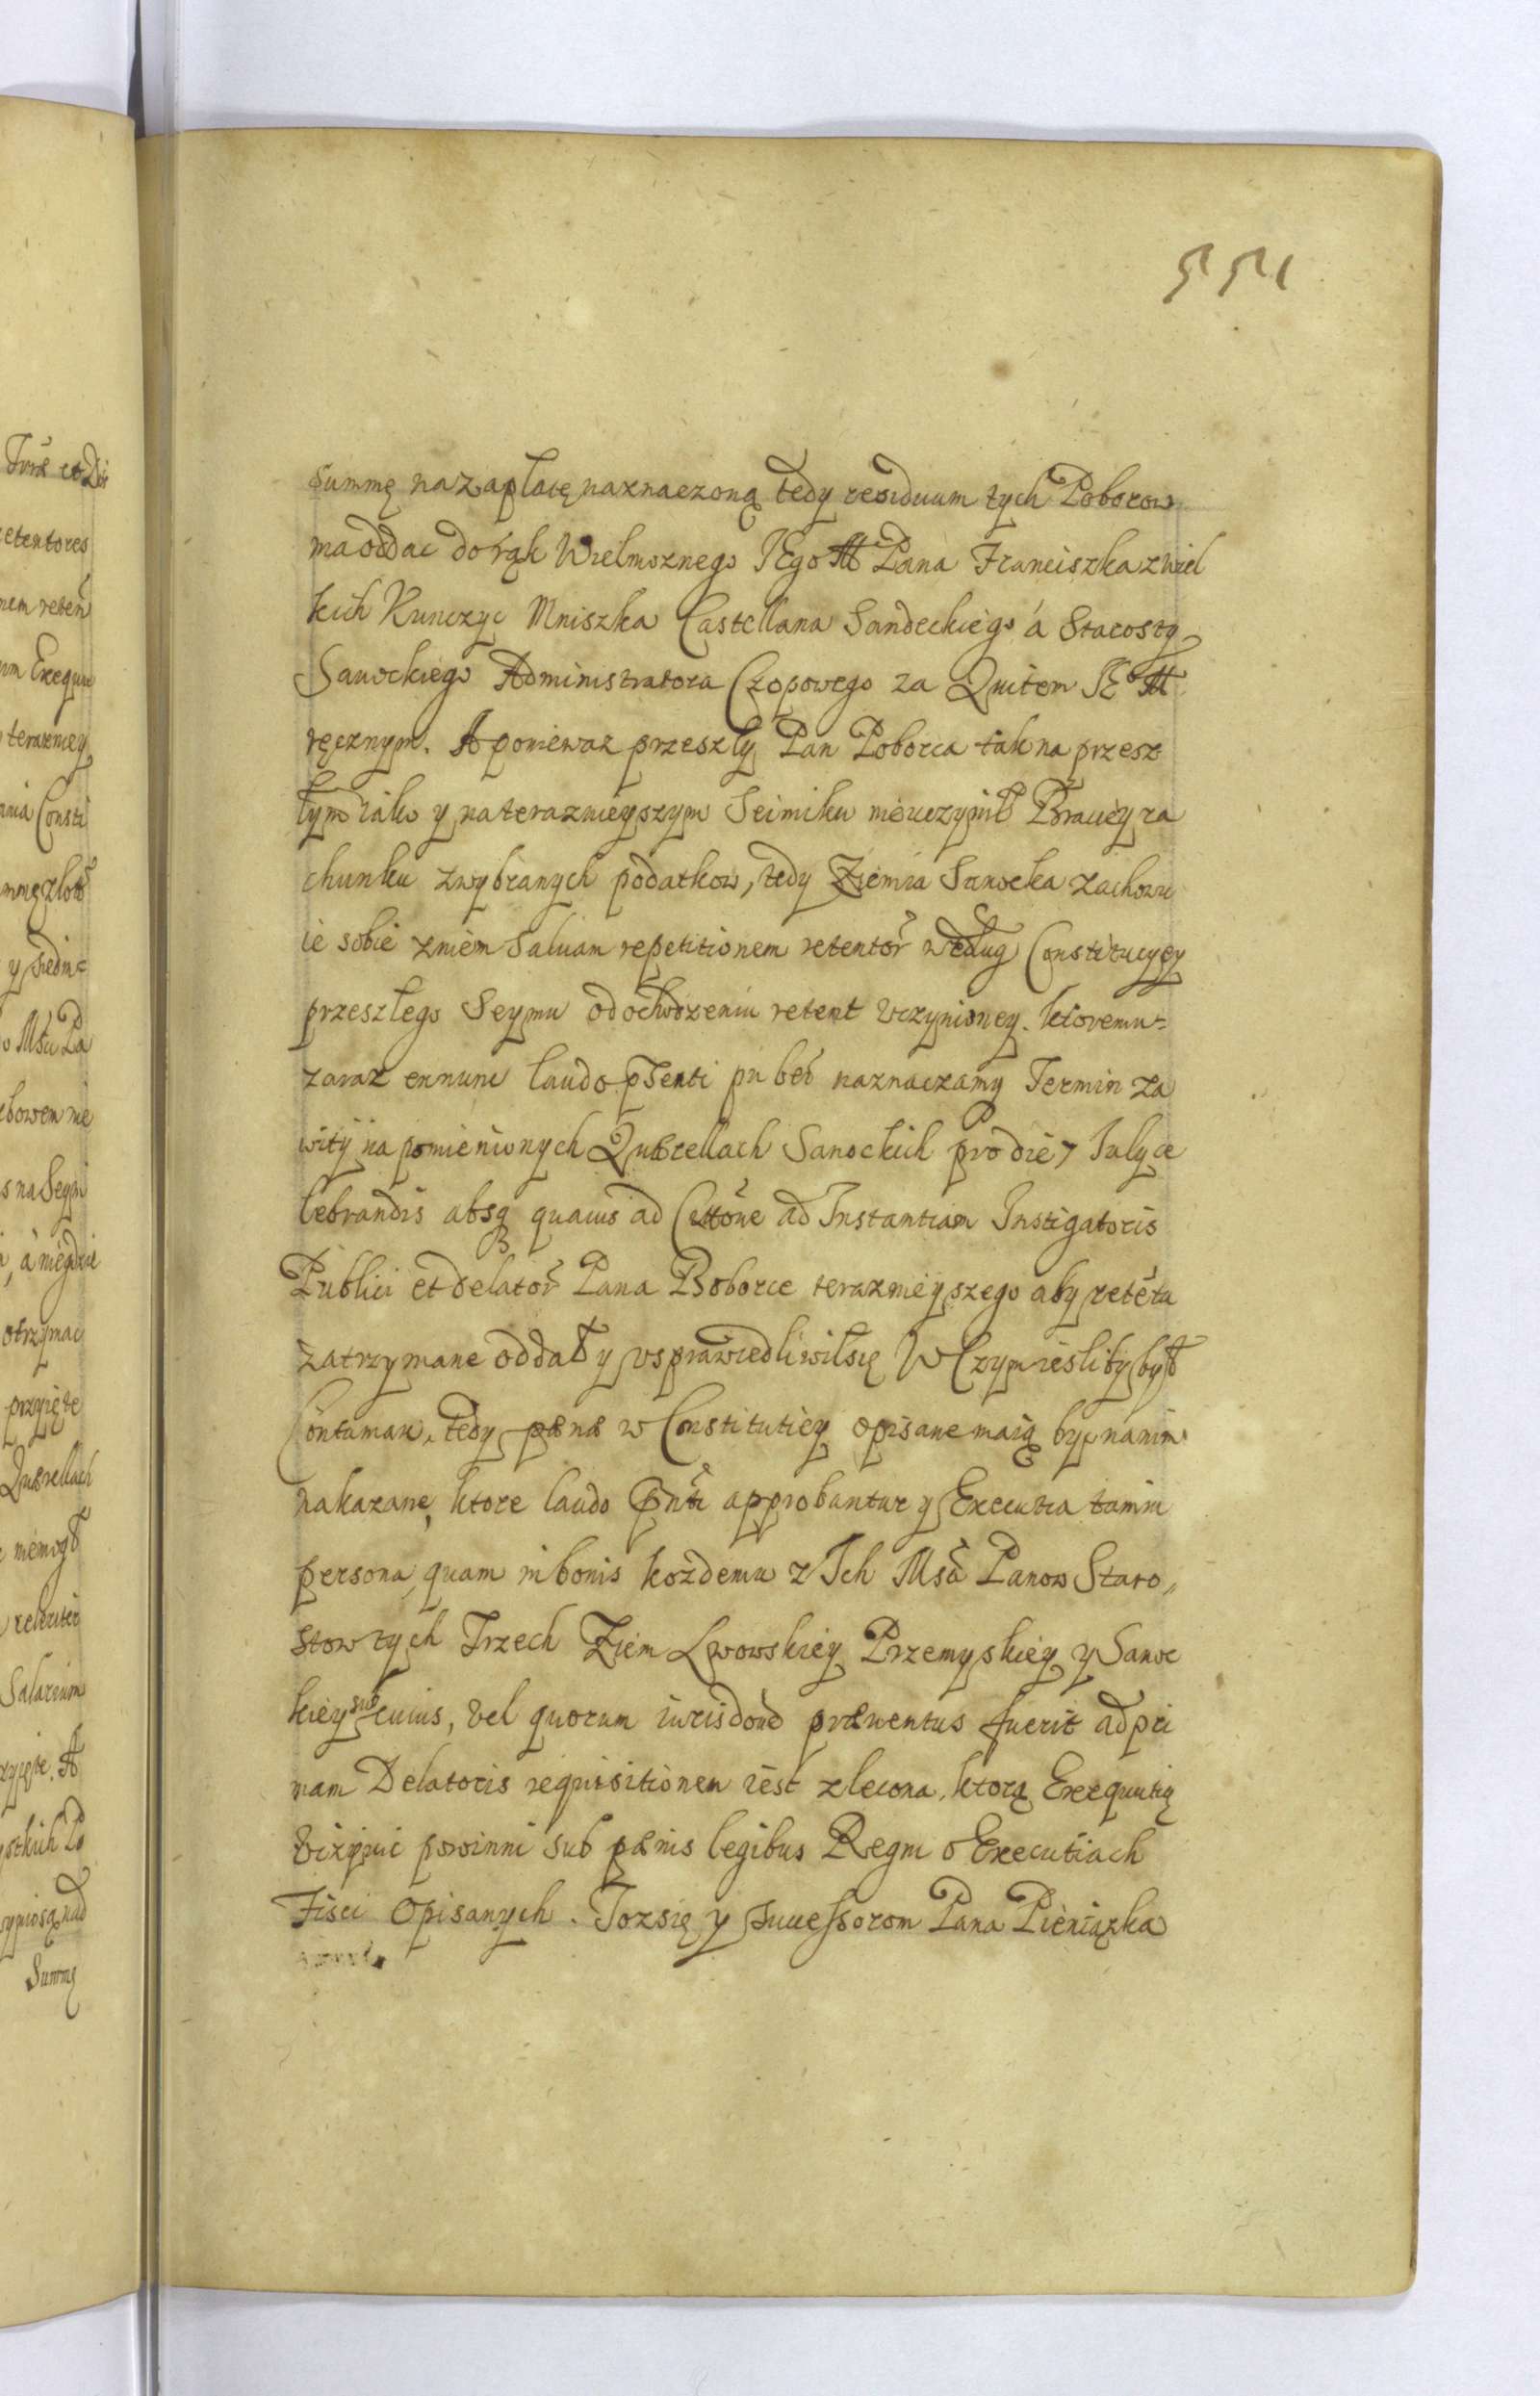 551
summę na zapłatę naznaczoną tedy residuum tych Poborow
ma oddac do rąk Wielmoznego JEgo M Pana Franciszka z Wiel
kich Kunczyc Mniszka Castellana Sandeckiego á Starosty
Sanockiego Administratora Czopowego za Quitem JEo M
ręcznym. A poniewaz przeszły Pan Poborca tak na przesz
łym iako y na teraznieyszym Seimiku nieuczynił Prawey ra
chunku zwybranych podatkow, tedy Ziemia Sanocka zachowu
ie sobie zniem Saluam repetitionem retentor̃ według Constitucyey
przeszłego Seymu o dochodzeniu retent vczynioney. ktoremu
zaraz exnunc laudo pñti naznaczamy Termin za
wity na pomienionych Querellach Sanockich pro die 7 July ce
lebrandis absq quauis ad Cittõne ad Instantiam Instigatoris
Publici et delator̃ Pana Poborce teraznieyszego aby retẽta
zatrzymane oddał y vsprawiedliwił się W Czym iesliby był
Contumax, tedy pænæ w Constitutiey opisane maią byc nanim
nakazane, ktore laudo pñti approbantur y Executia tam in
persona, quam in bonis kozdemu z Ich Msci Panow Staro
stow tych Trzech Ziem Lwowskiey Przemyskiey y Sanoc
kiey sub cuius, vel quorum iurisdõne præuentus fuerit ad pri
mam Delatoris requisitionem iest zlecona, ktorą Exequutią
vczynic powinni sub pænis legibus Regni o Executiach
Fisci opisanych. Toz się y successorom Pana Pieniązka